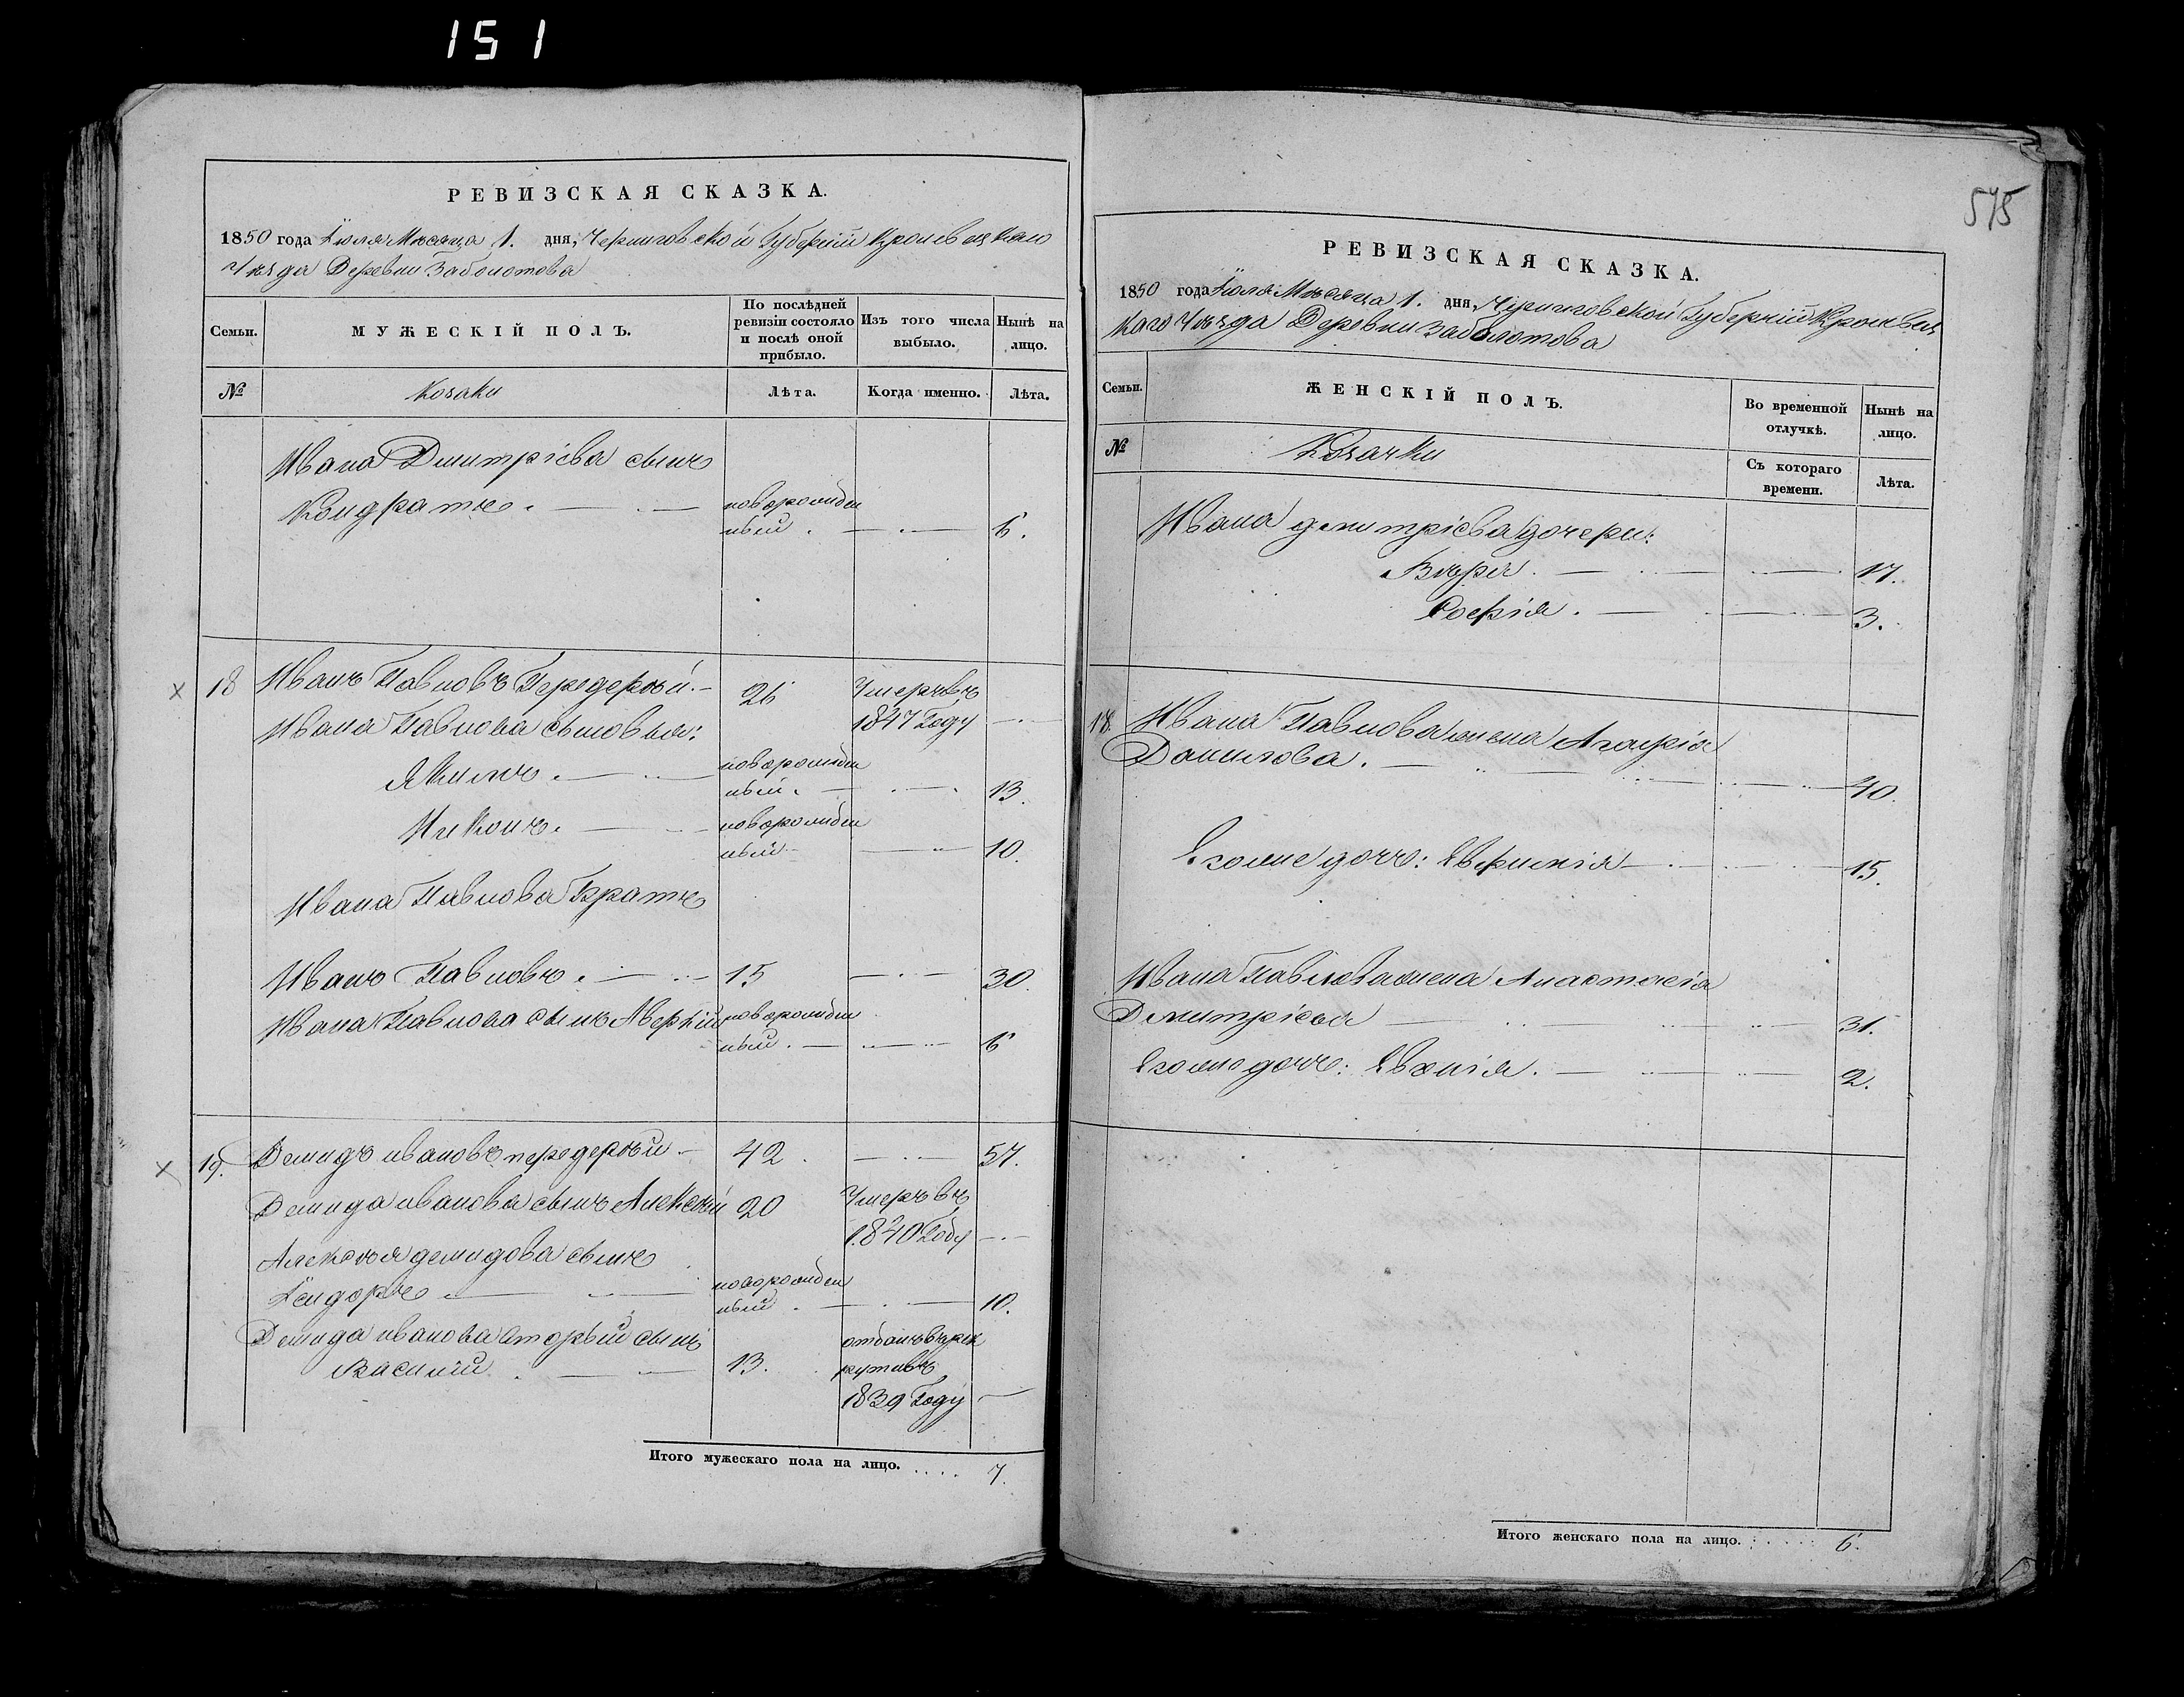 151
РЕВИЗСКАЯ СКАЗКА.
1850 года Іюля Мѣсяца 1. дня, Черниговской Губерніи Кролевецкаго
Уѣзда Деревни Заболотова
Семьи.
МУЖЕСКІЙ ПОЛЪ.
По послѣдней
ревизіи состояло
и послѣ оной
прибыло.
Изъ того числа
выбыло.
Нынѣ на
лицо.
№
Козаки
Лѣта.
Когда именно.
Лѣта.
Ивана Дмитріева сынъ
Кондратъ. новорожден
ный. 6.
18 Иванъ Павловъ Передерѣй. 26 Умеръ въ
Ивана Павлова сыновья: 1847 Году
Якимъ. новорожден
ный. 13.
Никонъ. новорожден
ный 10.
Ивана Павлова Братъ
Иванъ Павловъ. 15 30.
Ивана Павлова сынъ Аверкій новорожден
ный. 6
19. Демидъ ивановъ передерѣй 42. 57.
Демида иванова сынъ Алексѣй 20 Умеръ въ
1840 Году
Алексѣя демидова сынъ
Ісидоръ новорожден
ный. 10.
Демида иванова вторый сынъ отданъ въ рек
Василій 13. рутивъ
1839 Году
Итого мужескаго пола на лицо. .... 7.
575
РЕВИЗСКАЯ СКАЗКА.
1850 года Іюля Мѣсяца 1. дня, Черниговской Губерніи Кролевец
каго Уѣзда Деревни Заболотова
Семьи.
ЖЕНСКІЙ ПОЛЪ.
Во временной
отлучкѣ.
Нынѣ на
лицо.
№
Козачки
Съ котораго
времени.
Лѣта.
Ивана дмитріева дочери:
Вѣра. 17.
Софія. 3.
18. Ивана Павлова жена Агафія
Данилова. 40.
Егоже дочь: Евфимія 15.
Ивана Павлова жена Анастасія
Дмитріева 31.
Егоже дочь: Евгенія. 2.
Итого женскаго пола на лицо. 6.